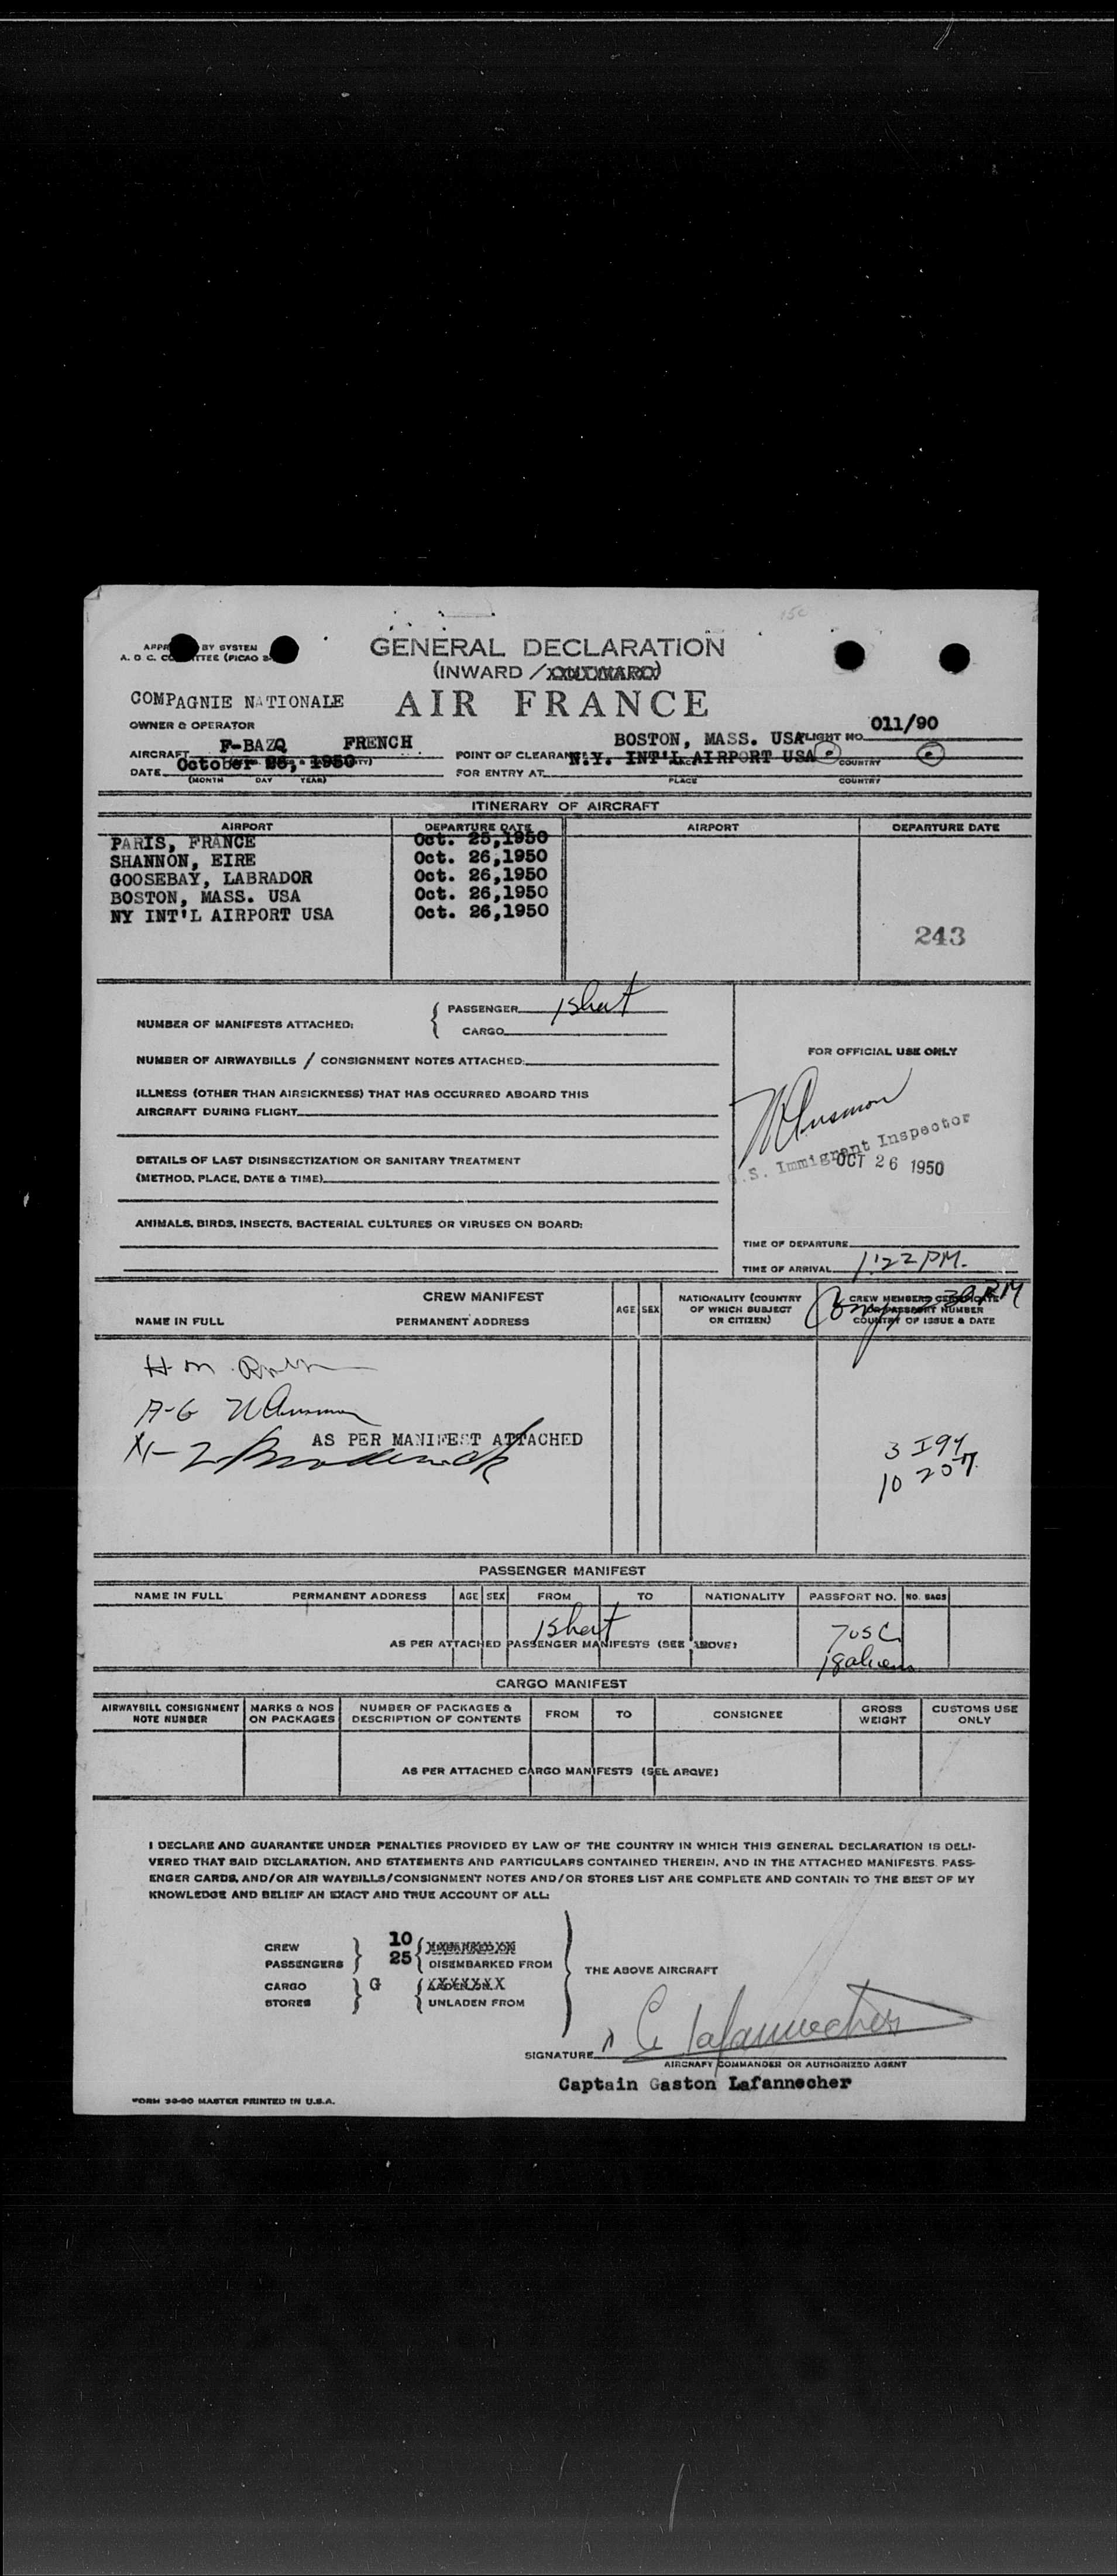 GENERAL DECLARATION
(INWARD / XXXXXXXXX)
COMPAGNIE NATIONALE
AIR FRANCE
OWNER & OPERATOR
011/90
AIRCRAFT F-BAZQ FRENCH
POINT OF CLEARANCE BOSTON, MASS. USA FLIGHT NO.
DATE October 26, 1950
FOR ENTRY AT N.Y. INT'L AIRPORT USA
(MONTH DAY YEAR)
PLACE COUNTRY
ITINERARY OF AIRCRAFT
AIRPORT DEPARTURE DATE AIRPORT DEPARTURE DATE
PARIS, FRANCE Oct. 25,1950
SHANNON, EIRE Oct. 26,1950
GOOSEBAY, LABRADOR Oct. 26,1950
BOSTON, MASS. USA Oct. 26,1950
NY INT'L AIRPORT USA Oct. 26,1950
243
NUMBER OF MANIFESTS ATTACHED:
PASSENGER 1 sheet
CARGO
NUMBER OF AIRWAYBILLS / CONSIGNMENT NOTES ATTACHED:
ILLNESS (OTHER THAN AIRSICKNESS) THAT HAS OCCURRED ABOARD THIS
AIRCRAFT DURING FLIGHT
DETAILS OF LAST DISINSECTIZATION OR SANITARY TREATMENT
(METHOD, PLACE, DATE & TIME)
ANIMALS, BIRDS, INSECTS, BACTERIAL CULTURES OR VIRUSES ON BOARD:
FOR OFFICIAL USE ONLY
U.S. Immigrant Inspector
OCT 26 1950
TIME OF DEPARTURE
TIME OF ARRIVAL 1:22 PM.
CREW MANIFEST
NAME IN FULL PERMANENT ADDRESS
AGE SEX
NATIONALITY (COUNTRY
OF WHICH SUBJECT
OR CITIZEN)
CREW MEMBERS CERTIFICATE
OR PASSPORT NUMBER
COUNTRY OF ISSUE & DATE
AS PER MANIFEST ATTACHED
3 I94
10 207
PASSENGER MANIFEST
NAME IN FULL PERMANENT ADDRESS AGE SEX FROM TO NATIONALITY PASSPORT NO. NO. BAGS
1 sheet
AS PER ATTACHED PASSENGER MANIFESTS (SEE ABOVE)
7 USC
18 aliens
CARGO MANIFEST
AIRWAYBILL CONSIGNMENT
NOTE NUMBER
MARKS & NOS
ON PACKAGES
NUMBER OF PACKAGES &
DESCRIPTION OF CONTENTS
FROM TO CONSIGNEE
GROSS
WEIGHT
CUSTOMS USE
ONLY
AS PER ATTACHED CARGO MANIFESTS (SEE ABOVE)
I DECLARE AND GUARANTEE UNDER PENALTIES PROVIDED BY LAW OF THE COUNTRY IN WHICH THIS GENERAL DECLARATION IS DELI-
VERED THAT SAID DECLARATION, AND STATEMENTS AND PARTICULARS CONTAINED THEREIN, AND IN THE ATTACHED MANIFESTS, PASS-
ENGER CARDS, AND/OR AIR WAYBILLS/CONSIGNMENT NOTES AND/OR STORES LIST ARE COMPLETE AND CONTAIN TO THE BEST OF MY
KNOWLEDGE AND BELIEF AN EXACT AND TRUE ACCOUNT OF ALL:
CREW 10
PASSENGERS 25 DISEMBARKED FROM
THE ABOVE AIRCRAFT
CARGO G
STORES UNLADEN FROM
SIGNATURE G Lafannecher
AIRCRAFT COMMANDER OR AUTHORIZED AGENT
Captain Gaston Lafannecher
FORM 30-90 MASTER PRINTED IN U.S.A.